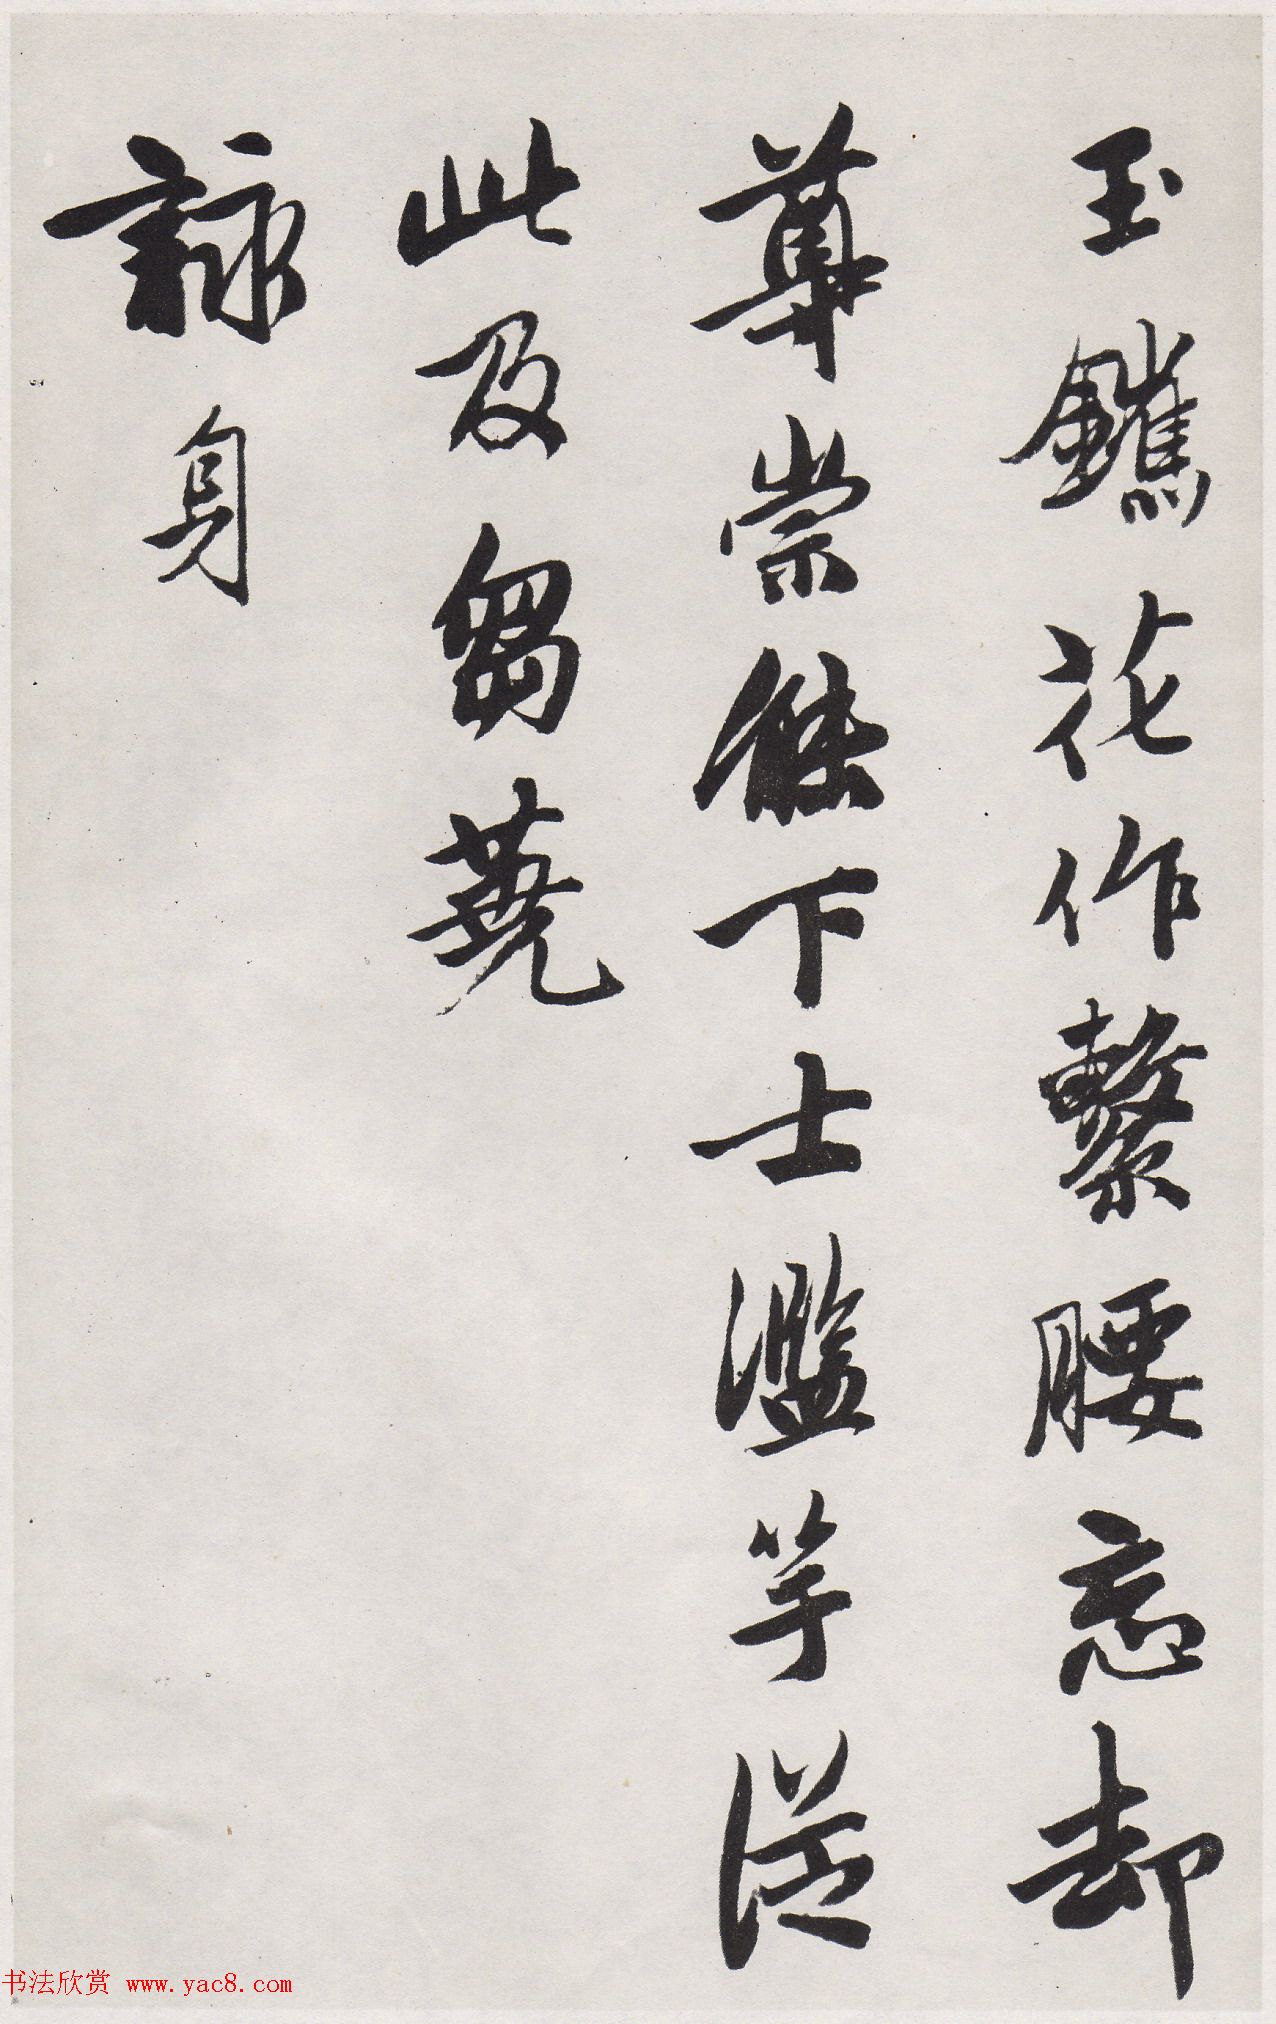 玉花作繫腰忘却
尊崇能下士濫竽從
此及芻蕘
詠身
书法欣赏 www.yac8.com